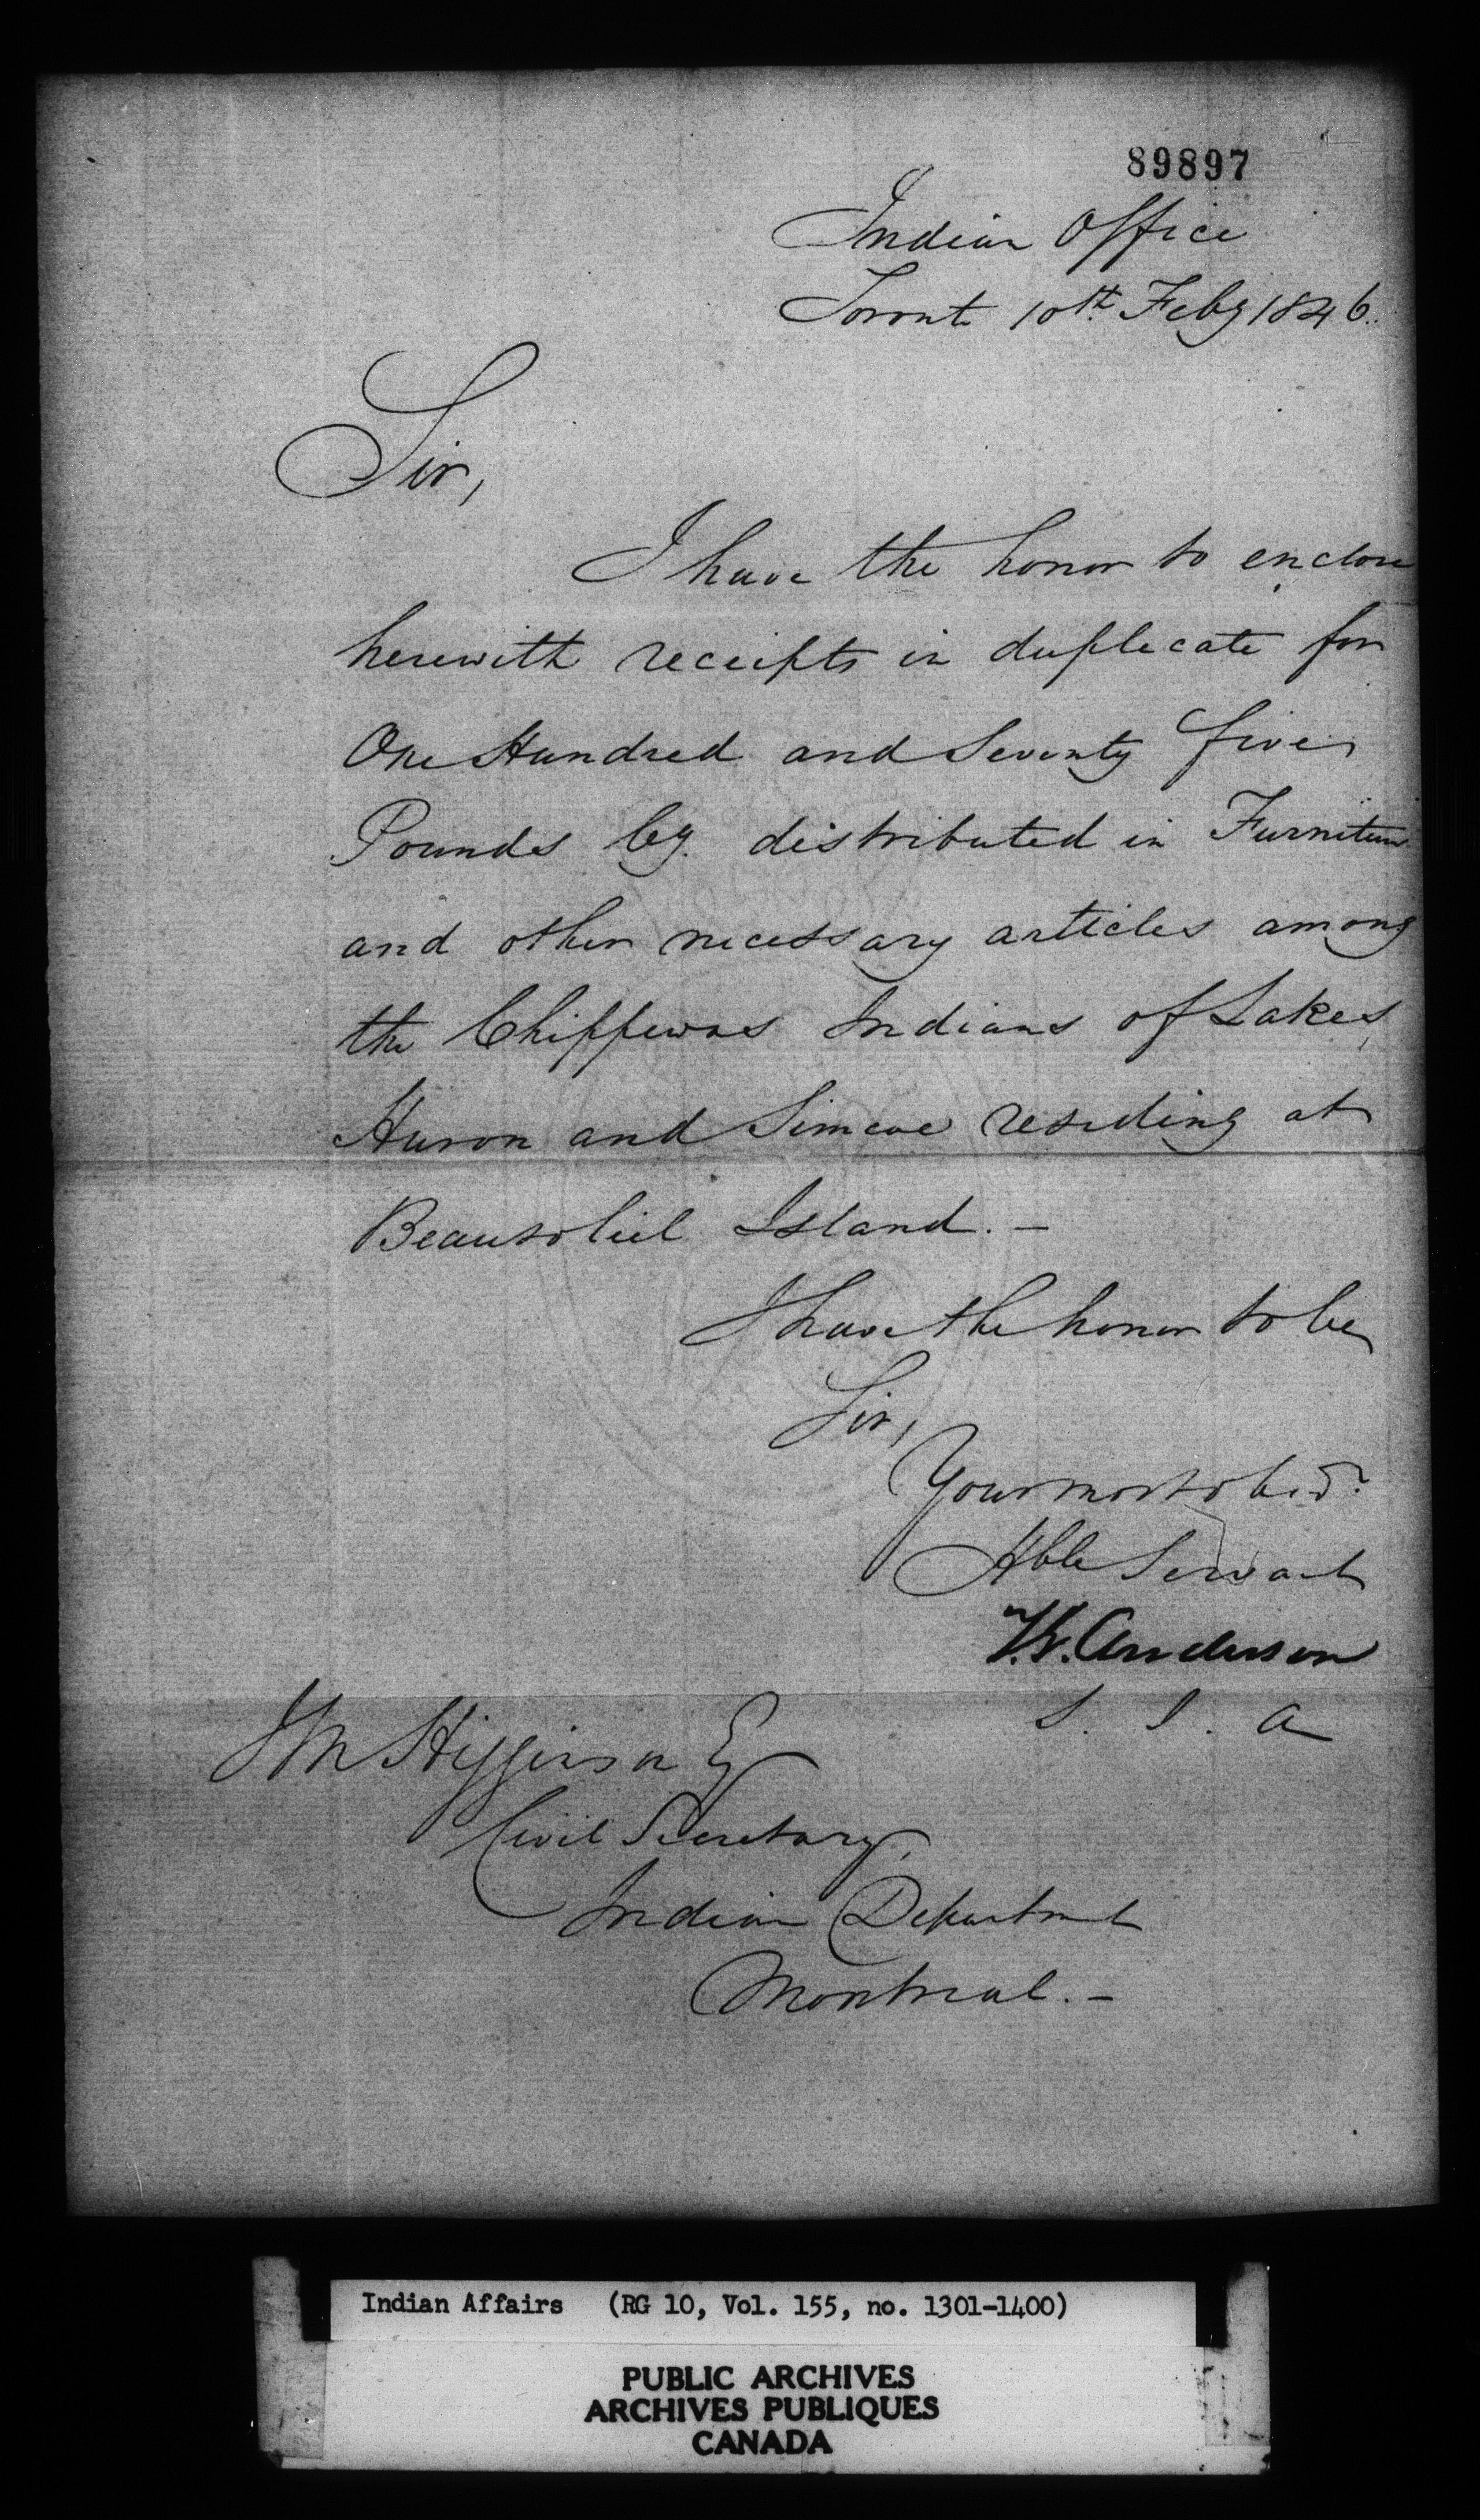 89897
Indian Office
Toronto 10th Feby 1846.
Sir,
I have the honor to enclose
herewith receipts in duplicate for
One Hundred and Seventy five
Pounds Cy. distributed in Furniture
and other necessary articles among
the Chippewas Indians of Lakes
Huron and Simcoe residing at
Beausoliel Island. —
I have the honor to be
Sir,
Your most obed.
Hble Servant
T.G. Anderson
S. I. A
J M Higginson Esq
Civil Secretary,
Indian Department
Montreal. —
Indian Affairs (RG 10, Vol. 155, no. 1301-1400)
PUBLIC ARCHIVES
ARCHIVES PUBLIQUES
CANADA